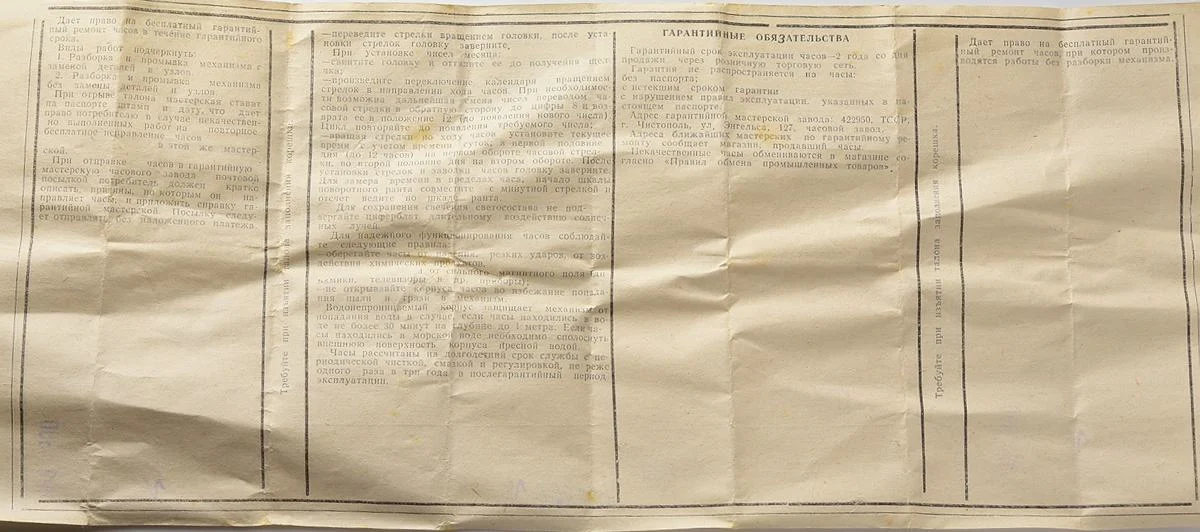 Дает право на бесплатный гарантий-
ный ремонт часов в течение гарантийного
срока.
Виды работ подчеркнуть:
1. Разборка и промывка механизма с
заменой деталей и узлов.
2. Разборка и промывка механизма
без замены деталей и узлов.
При отрыве талона мастерская ставит
на паспорте штамп и дату, что дает
право потребителю в случае некачествен-
но выполненных работ на повторное
бесплатное исправление часов
в этой же мастер-
ской.
При отправке часов в гарантийную
мастерскую часового завода почтовой
посылкой потребитель должен кратко
описать, причины, по которым он на-
правляет часы, и приложить справку га-
рантийной мастерской. Посылку следу-
ет отправлять без наложенного платежа.
Требуйте при изъятии талона заполнения корешка.
—переведите стрелки вращением головки, после уста-
новки стрелок головку заверните.
При установке чисел месяца:
—свинтите головку и оттяните ее до получения щел-
чка;
—произведите переключение календаря вращением
стрелок в направлении хода часов. При необходимос-
ти возможна дальнейшая смена чисел переводом ча-
совой стрелки в обратную сторону до цифры 8 и воз-
врата ее в положение 12 (до появления нового числа)
Цикл повторяйте до появления требуемого числа;
—вращая стрелки по ходу часов, установите текущее
время с учетом времени суток: в первой половине
дня (до 12 часов) на первом обороте часовой стрел-
ки, во второй половине дня на втором обороте. После
установки стрелок и заводки часов головку заверните.
Для замера времени в пределах часа, начало шкалы
поворотного ранта совместите с минутной стрелкой и
отсчет ведите по шкале ранта.
Для сохранения свечения светосостава не под-
вергайте циферблат длительному воздействию солнеч-
ных лучей.
Для надежного функционирования часов соблюдай-
те следующие правила:
оберегайте часы от падения, резких ударов, от воз-
действия химических препаратов,
от сильного магнитного поля (ди-
намики, телевизоры и др. приборы);
не открывайте корпуса часов во избежание попада-
ния пыли и грязи в механизм.
Водонепроницаемый корпус защищает механизм от
попадания воды в случае, если часы находились в во-
де не более 30 минут на глубине до 1 метра. Если ча-
сы находились в морской воде необходимо сполоснуть
внешнюю поверхность корпуса пресной водой.
Часы рассчитаны на долголетний срок службы с пе-
риодической чисткой, смазкой и регулировкой, не реже
одного раза в три года в послегарантийный период
эксплуатации.
ГАРАНТИЙНЫЕ ОБЯЗАТЕЛЬСТВА
Гарантийный срок эксплуатации часов—2 года со дня
продажи через розничную торговую сеть.
Гарантия не распространяется на часы:
без паспорта;
с истекшим сроком гарантии
с нарушением правил эксплуатации, указанных в на-
стоящем паспорте.
Адрес гарантийной мастерской завода: 422950, ТССР,
г. Чистополь, ул. Энгельса, 127, часовой завод.
Адреса ближайших мастерских по гарантийному ре-
монту сообщает магазин, продавший часы.
Некачественные часы обмениваются в магазине со-
гласно «Правил обмена промышленных товаров».
Требуйте при изъятии талона заполнения корешка.
Дает право на бесплатный гарантий-
ный ремонт часов, при котором произ-
водятся работы без разборки механизма.